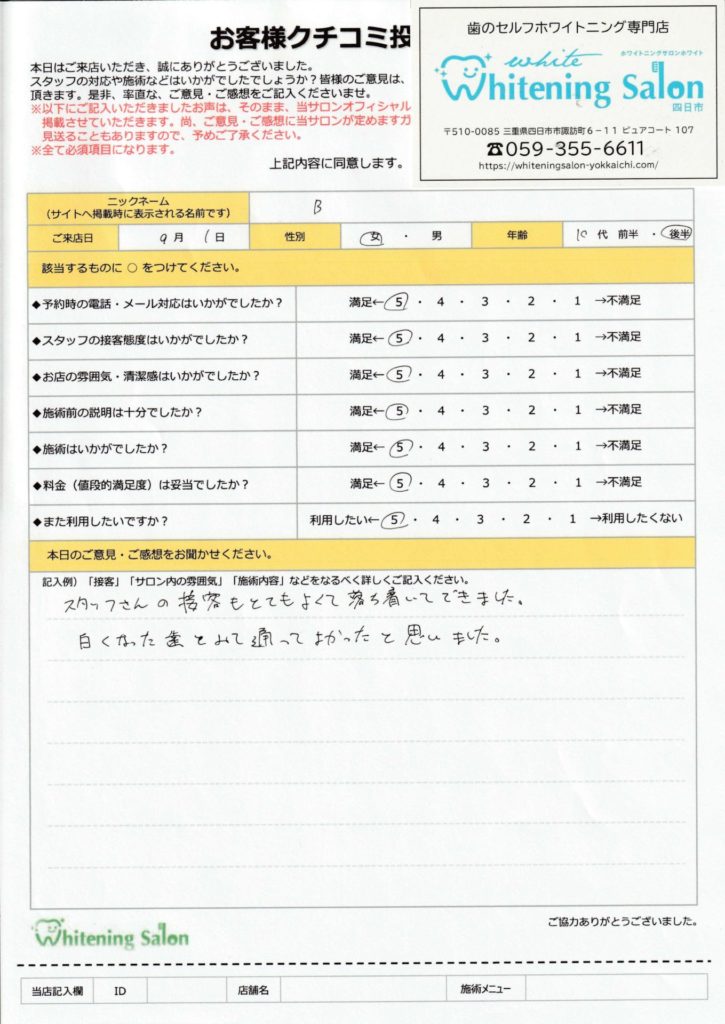 お客様クチコミ投
本日はご来店いただき、誠にありがとうございました。
スタッフの対応や施術などはいかがでしたでしょうか？皆様のご意見は、
頂きます。是非、率直な、ご意見・ご感想をご記入くださいませ。
※以下にご記入いただきましたお声は、そのまま、当サロンオフィシャル
掲載させていただきます。尚、ご意見・ご感想に当サロンが定めますガ
見送ることもありますので、予めご了承ください。
※全て必須項目になります。
上記内容に同意します。
歯のセルフホワイトニング専門店
white
ホワイトニングサロンホワイト
Whitening Salon
四日市
〒510-0085 三重県四日市市諏訪町6－11 ピュアコート 107
☎059-355-6611
https://whiteningsalon-yokkaichi.com/
ニックネーム
（サイトへ掲載時に表示される名前です） B
ご来店日 9月 1日 性別 女 ・ 男 年齢 10代 前半 ・ 後半
該当するものに ○ をつけてください。
◆予約時の電話・メール対応はいかがでしたか？ 満足← 5 ・ 4 ・ 3 ・ 2 ・ 1 →不満足
◆スタッフの接客態度はいかがでしたか？ 満足← 5 ・ 4 ・ 3 ・ 2 ・ 1 →不満足
◆お店の雰囲気・清潔感はいかがでしたか？ 満足← 5 ・ 4 ・ 3 ・ 2 ・ 1 →不満足
◆施術前の説明は十分でしたか？ 満足← 5 ・ 4 ・ 3 ・ 2 ・ 1 →不満足
◆施術はいかがでしたか？ 満足← 5 ・ 4 ・ 3 ・ 2 ・ 1 →不満足
◆料金（値段的満足度）は妥当でしたか？ 満足← 5 ・ 4 ・ 3 ・ 2 ・ 1 →不満足
◆また利用したいですか？ 利用したい← 5 ・ 4 ・ 3 ・ 2 ・ 1 →利用したくない
本日のご意見・ご感想をお聞かせください。
記入例）「接客」「サロン内の雰囲気」「施術内容」などをなるべく詳しくご記入ください。
スタッフさんの接客もとてもよくて落ち着いてできました。
白くなった歯をみて通ってよかったと思いました。
Whitening Salon
ご協力ありがとうございました。
当店記入欄 ID 店舗名 施術メニュー